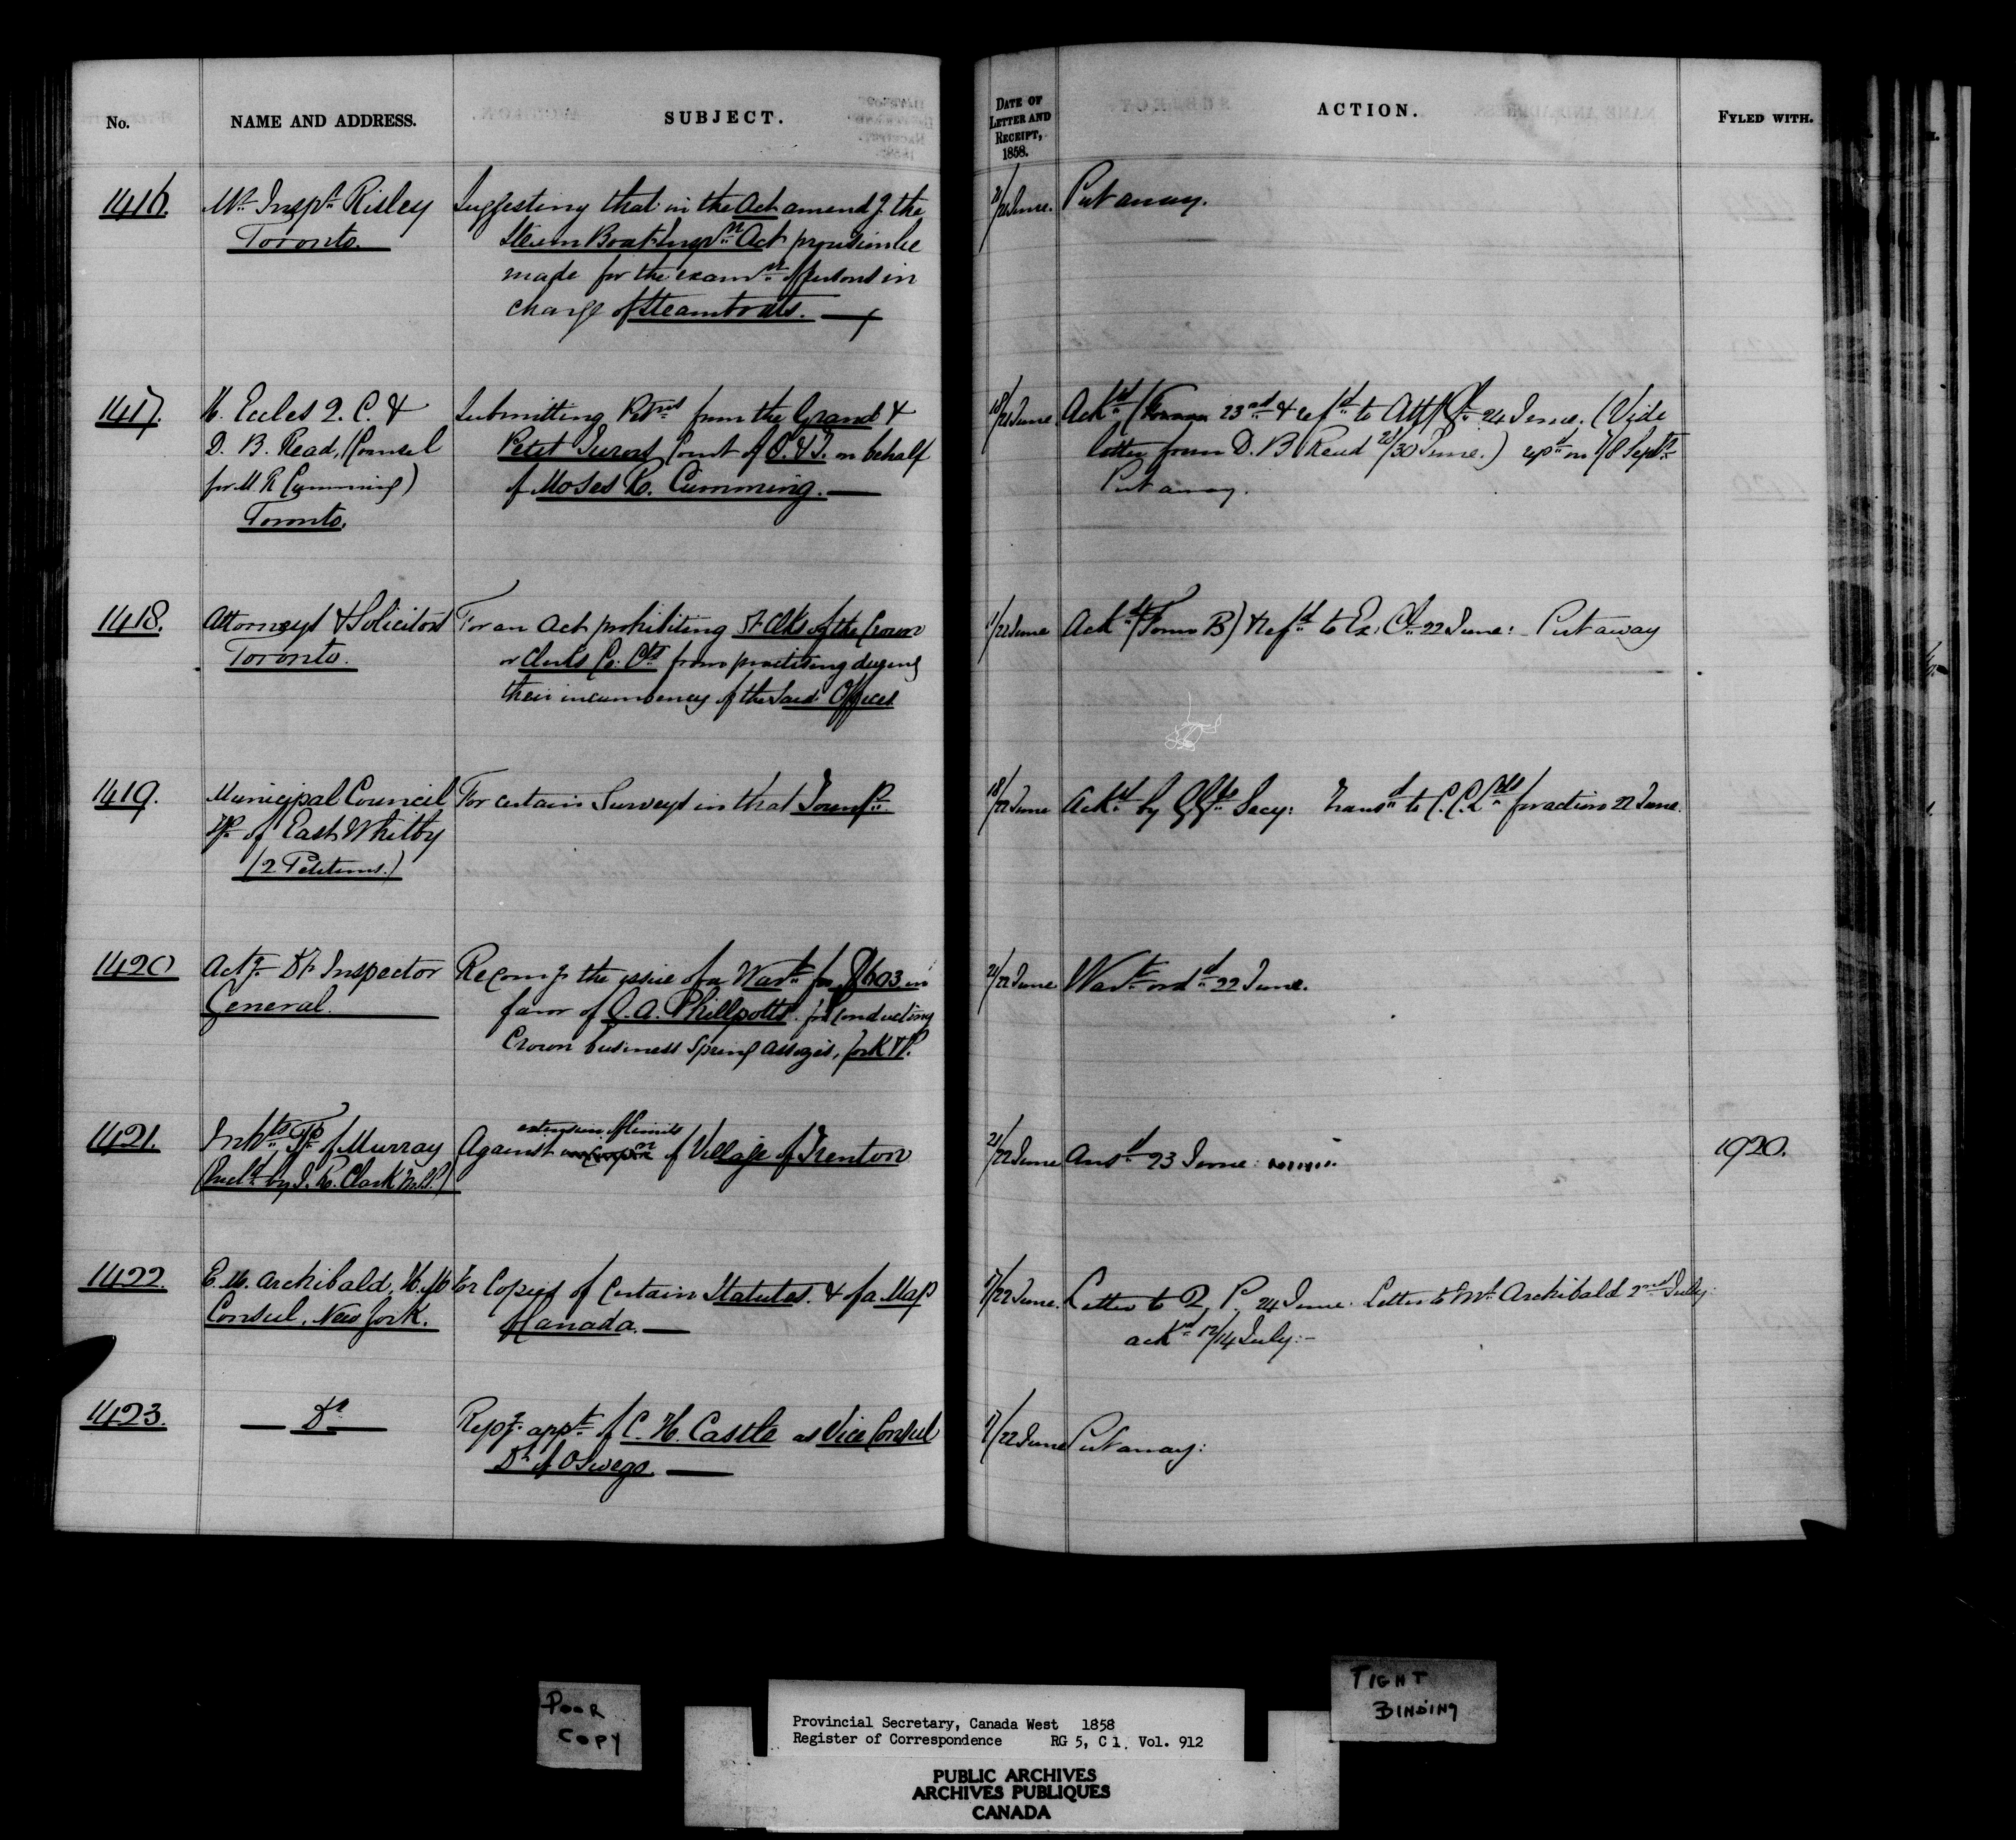 No.
NAME AND ADDRESS.
SUBJECT.
DATE OF
LETTER AND
RECEIPT,
1858.
ACTION.
FYLED WITH.
1416.
Mr. Inspr. Risley
Toronto.
Suggesting that in the Act amendg. the
Steam Boat Inspn. Act provision be
made for the examn. of persons in
charge of Steamboats.
21/22 June.
Put away.
1417.
H. Eccles Q. C. &
D. B. Read, (Counsel
for M R Cumming)
Toronto.
Submitting Petns from the Grand &
Petit Jurors Court of O. & T. on behalf
of Moses R. Cumming.
18/21 June
Ackd. (Form 23rd & refd. to Atty Gl. 24 June. (Vide
letter from D. B Read 28/30 June.) repd. on 7/8 Sept.
Put away.
1418.
Attorneys & Solicitors
Toronto.
For an Act prohibiting Dt. Clks of the Crown
or Clerks Co: Cts from practising during
their incumbency of the said Offices
1/22 June
Ackd. (Form B) & refd. to Ex: Cl. 22 June: Put away
1419.
Municipal Council
Tp. of East Whitby
(2 Petitions.)
For certain Surveys in that Townp.
18/22 June
Ackd. by G Gls. Secy: Transd. to C. C. Lds. for action 22 June.
1420
Actg. Dt. Inspector
General.
Recomg. the issue of a Wart. for $603 in
favor of G. A. Phillpotts. for conducting
Crown business Spring Assizes, for K & P.
21/22 June
Wart. ordd. 22 June.
1421.
Inhts. Tp. of Murray
(Incld. by J. R. Clark M.P.)
extension of limits
Against of Village of Trenton
21/22 June
Ansd. 23 June:
1920.
1422.
E. M. Archibald, H. M
Consul, New York.
For Copies of Certain Statutes. & of a Map
of Canada.
17/22 June.
Letter to Q. P. 24 June. Letter to Mr. Archibald 2nd July:
ackd. 12/14 July:-
1423.
Do
Repg. appt. of C. H. Castle as Vice Consul
Dt. of Oswego.
17/22 June
Put away:
POOR
COPY
Provincial Secretary, Canada West 1858
Register of Correspondence RG 5, C 1. Vol. 912
PUBLIC ARCHIVES
ARCHIVES PUBLIQUES
CANADA
TIGHT
BINDING